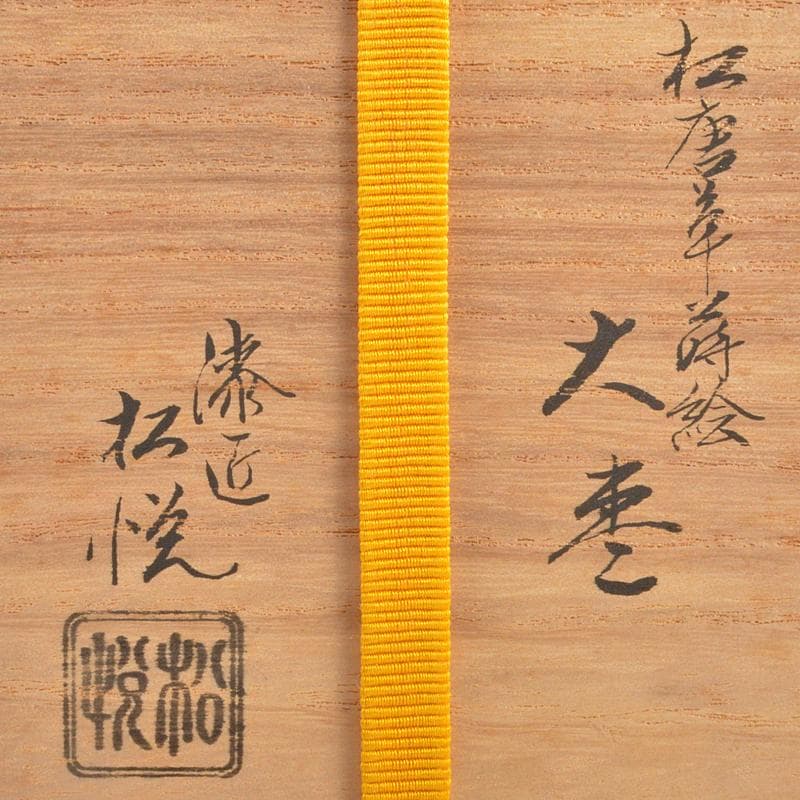 松唐草蒔絵
大棗
漆匠
松悦
松悦